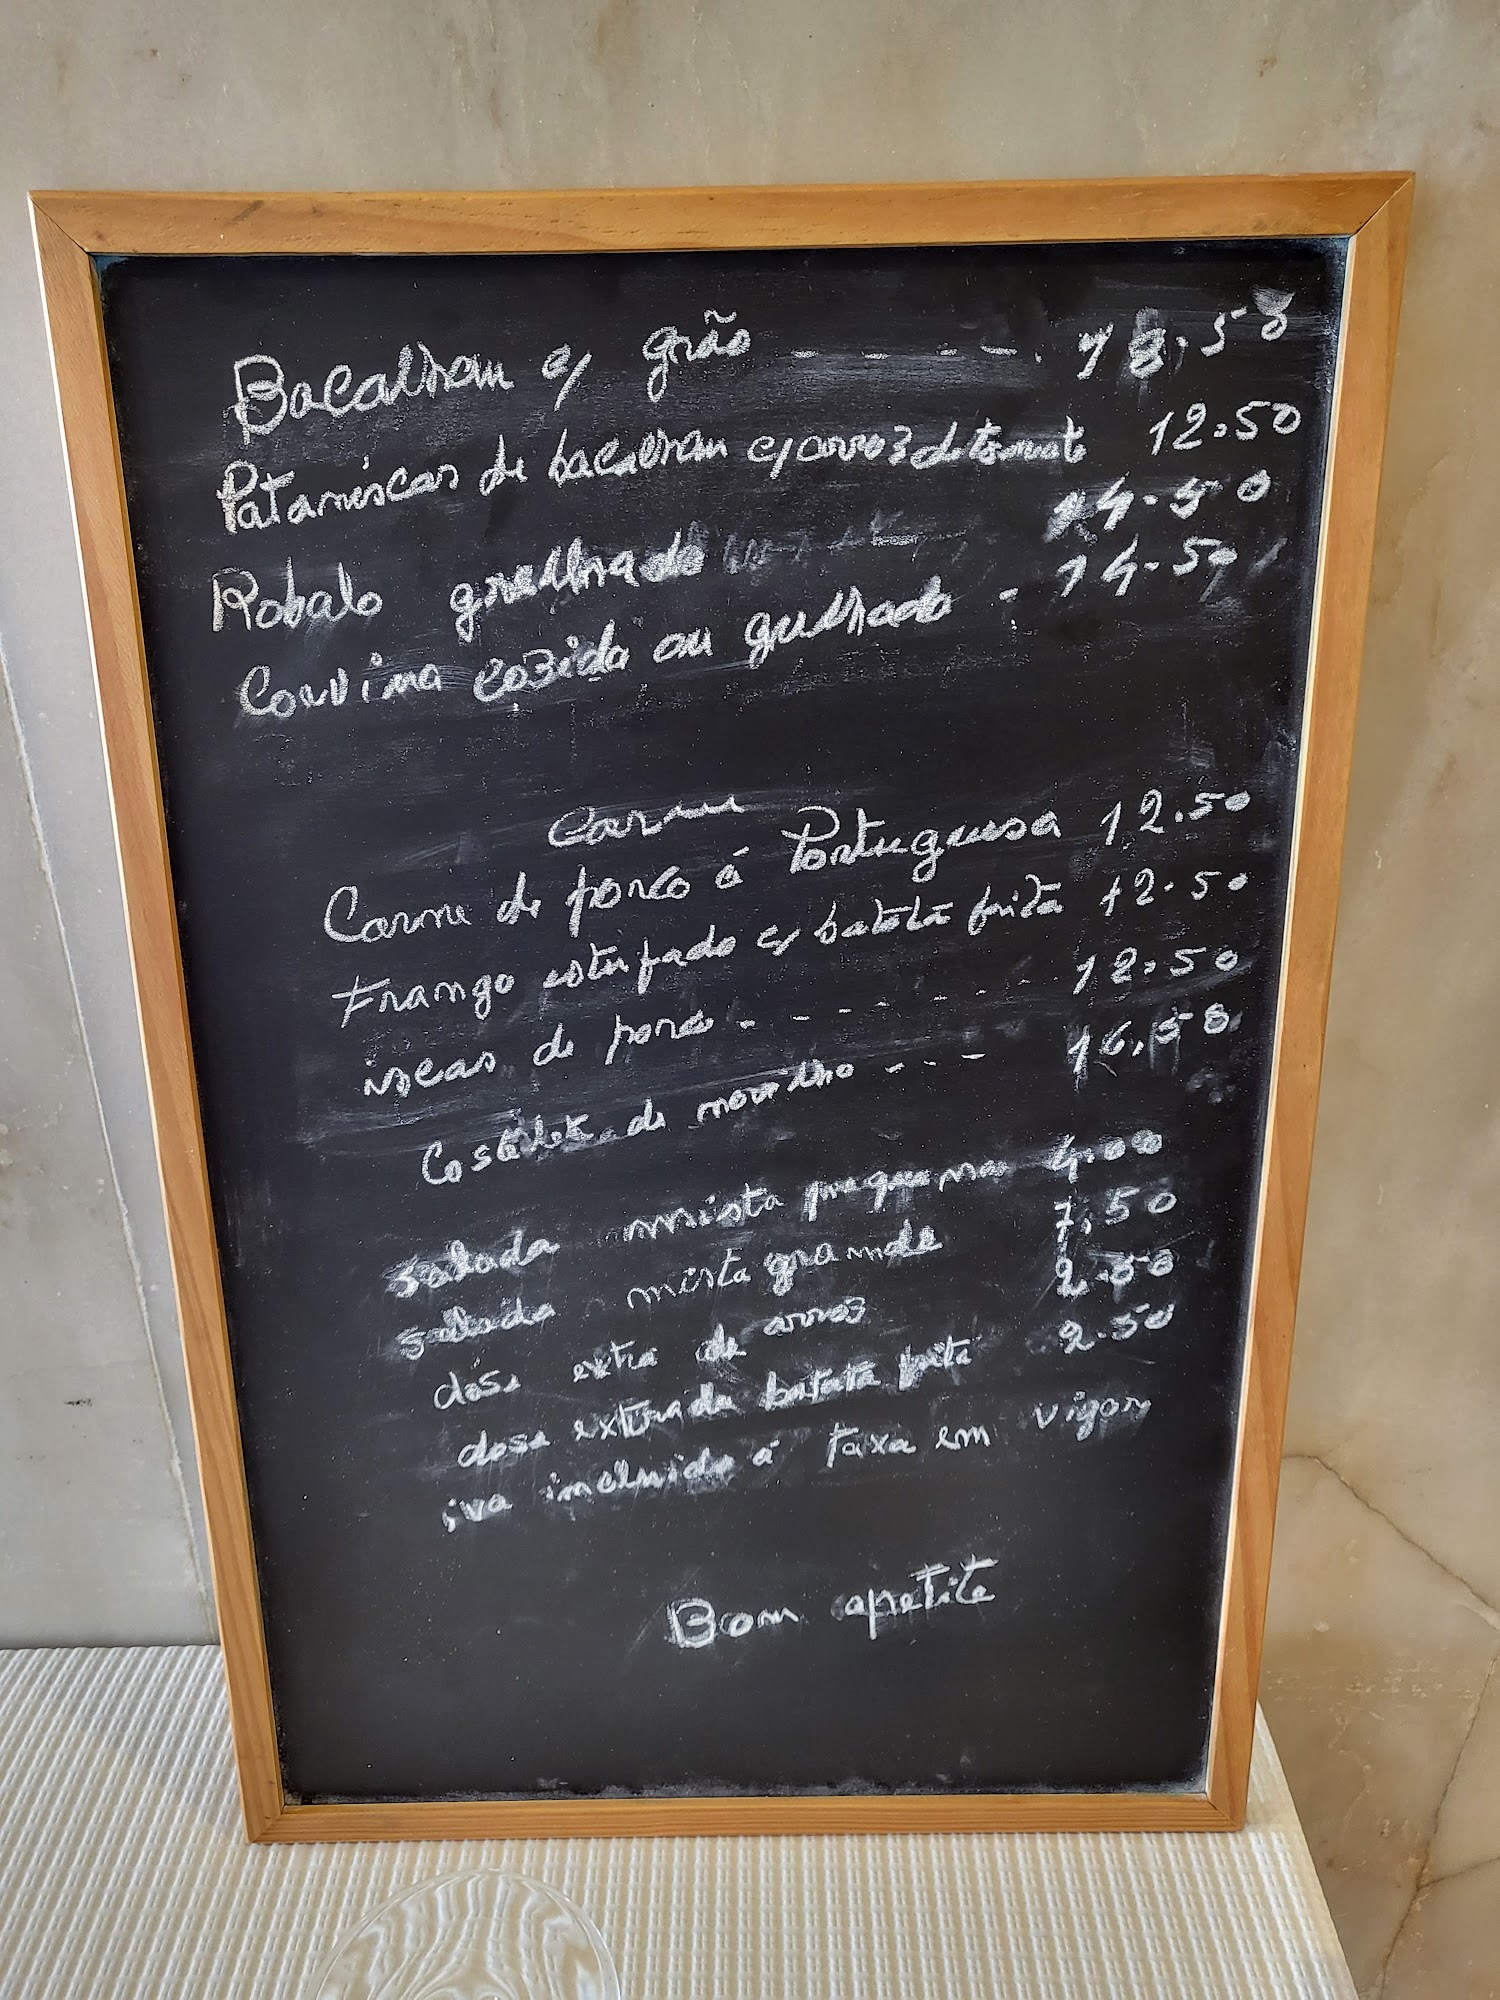 Bacalhau c/ grão - - - - - . 18.50
Pataniscas de bacalhau c/ arroz de tomate 12.50
Robalo grelhado 14.50
Corvina cozida ou gulhado - 14.50
Carne
Carne de porco á Portuguesa 12.50
Frango estufado c/ batata frita 12.50
iscas de porco - - - - - - - - 12.50
Costeleta de novilho - - - 16.50
salada mista pequena 4.00
salada mista grande 7.50
dose extra de arroz 2.50
dose extra da batata frita 2.50
iva incluido á taxa em vigor
Bom apetite